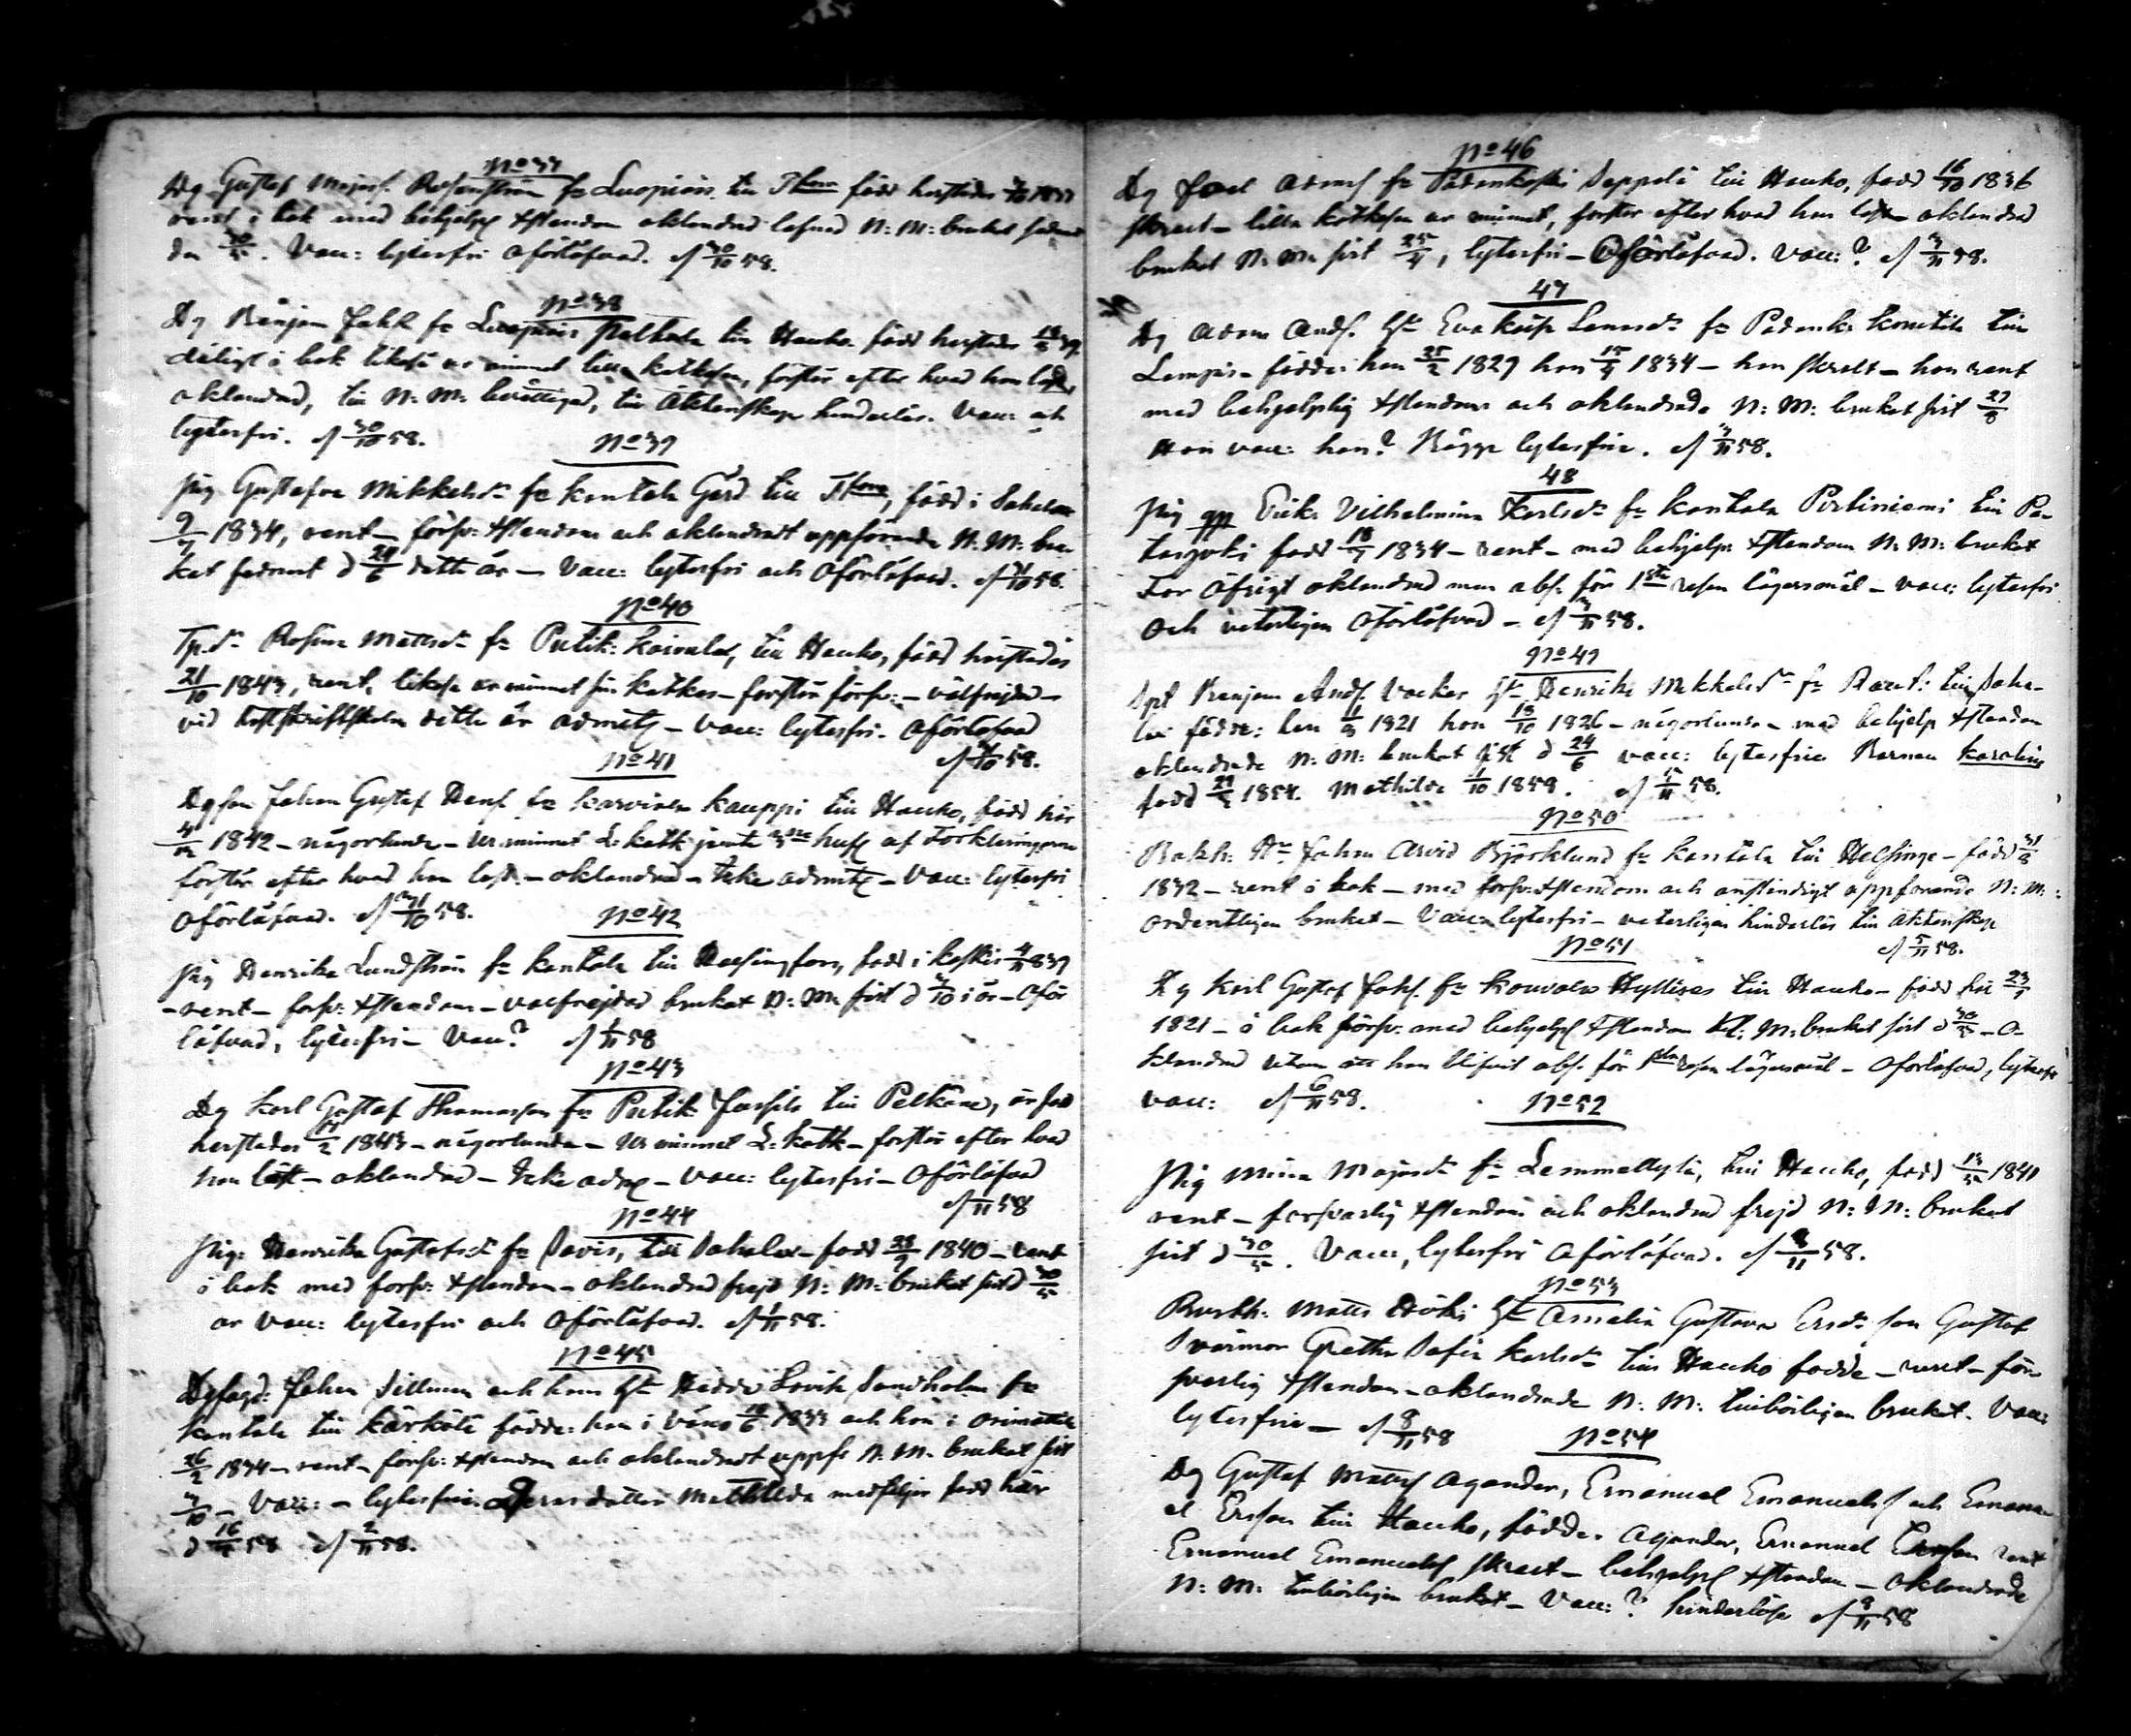 No 37
Dg Gustaf Majors. Rosenström fr Luopiois till Thus född härstädes 1837
rent i bok med behjelpl xstendom oklandrad lefnad N: M: brukat sednast
den 30/5. Vacc: lytesfri oförlofvad. af 30/10 58.
No 38
Dg Benjam Joh fr Luopiois Paltala till Hauho född härstädes 39
dåligt i bok likaså ur minnet lilla katkesen, förstår efter hvad han läst,
oklandrad, till N: M: berättigad, till Äktenskap hinderlös. Vacc: och
lytesfri. af 30/10 58.
No 39
Pig Gustafva Mikkelsdr fr Kantala Gård till född i Sahalax
9/7 1834, rent försv: xstendom och oklandradt uppförande N: M: bru-
kat sednast d 24/6 detta år – Vacc: lytesfri och oförlofvad. af 31/10 58.
No 40
Tp.dr Rosina Mattsdr fr Putik: Koivula, till Hauho, född härstädes
21/10 1843, rent, likaså ur minnet sin katkes – förstår försv: – välfrejdad
vid Nattskriftskolan detta år admitt – vacc: lytesfri. oförlofvad
af 31/10 58.
No 41
Dgson Johan Gustaf Hens fr Karvinen Kauppi till Hauho, född här
4/12 1842 – någorlunda – ur minnet L: katk jemte hufs af Förklaringarna
förstår efter hvad han läst – oklandrad – Icke admitt – Vacc: lytesfri
oförlofvad. af 31/10 58.
No 42
Pig Henrika Lundström fr Kantala till Helsingfors, född i Koskis 4/11 1839
– rent – försv: xstendom – välfrejdad brukat N: M: sist d 3/10 i år – oför
lofvad, lytesfri – Vacc? af 1/11 58
No 43
Dg Karl Gustaf Thomasson fr Putik Jussila till Pelkäne, är född
härstädes 17/2 1843 – någorlunda – ur minnet L: katk – förstår efter hvad
han läst – oklandrad – Icke adm – Vacc: lytesfri – oförlofvad
af /11 58
No 44
Pig: Henrika Gustafsdr fr Savis, till Sahalax – född 23/9 1840 – rent
i bok med försv: xstendom – oklandrad frejd N: M: brukat sist d 30/5
är Vacc: lytesfri och oförlofvad. af 1/11 58.
No 45
Dgfogd: Johan Sillman och hans hst Hedda Lovisa Sandholm fr
Kantala till Kärkölä födde: han i 18/6 1833 och hon i Orimattila
26/2 1834 – rent – försv: xstendom och oklandradt uppfr N: M: brukat sist
3/10 – Vacc: – lytesfria. Deras dotter Mathilda medföljer född här
d 16/5 58 af 2/11 58.
No 46
Dg Joel Adams fr Padankoski Seppälä till Hauho, född 16/10 1836
skralt – lilla katkesen ur minnet, förstår efter hvad han läst oklandrad
brukat N: M: sist 25/4, lytesfri – Oförlofvad. Vacc:? af 3/11 58.
47
Dg Adam Ands. hst Eva Kajs Lenasdr fr Padank: Konttila till
Lempäs – födde: han 25/2 1829 hon 15/4 1834 – han skralt – hon rent
med behjelplig xstendom och oklandrade N: M: brukat sist 27/8
Hon vacc: han? Bägge lytesfria. af 3/11 58.
48
Pig Erik: Vilhelmina Karlsdr fr Kantala Pirtiniemi till Pa-
född 18/7 1834 – rent – med behjelpl xstendom N: M: brukat
För öfrigt oklandrad men abs. för 1sta resan lägersmål – vacc: lytesfri
Och veterligen oförlofvad – af 3/11 58.
No 49
Spt Benjam Ands Vacker hst Henrika Mikkelsdr fr Raut: till Saha-
lax födde: han 1/9 1821 hon 13/10 1826 – någorlunda – med behjelp xstendom
oklandrade N: M: brukat sist d 24/6 vacc: lytesfria Barnen Karolina
född 29/2 1854. Mathilda 1/10 1858. af 5/11 58.
No 50
Bokh: Hr: Johan Arvid Björklund fr Kantala till Helsinge – född 31/8
1832 – rent i bok – med försv: xstendom och anständigt uppförande N: M:
ordentligen brukat – Vacc: lytesfri – veterligen hinderlös till äktenskap
af 5/11 58.
No 51
Dg Karl Gustaf Johs. fr Kouvala Hyllises till Hauho – född här 23/1
1821 – i bok försv: med behjelpl xstendom N: M: brukat sist d 30/5 – o-
klandrad utom att han blifvit abs. för 1sta resan lägersmål – oförlofvad, lytesfri
vacc: af 6/11 58.
No 52
Pig Mina Majasdr fr Lemmettylä, till Hauho, född 13/5 1841
rent – försvarlig xstendom och oklandrad frejd N: M: brukat
sist d 30/5. Vacc:, lytesfri oförlofvad. af 8/11 58.
No 53
Bursk: Matts Höki hst Amalia Gustava Ersdr son Gustaf
Svärmor Gretha Sofia Karlsdr till Hauho födde – rent – för-
svarlig xstendom – oklandrade N: M: tillbörligen brukat. Vacc:
lytesfria – af 8/11 58
No 54
Dg Gustaf Matts Agander, Emanuel Emanuels och Emanu-
el Ersson till Hauho, födde. Agander, Emanuel Ersson rent
Emanuel Emanuels skralt – behjelpl xstendom – oklandrade
N: M: tillbörligen brukat – Vacc:? hinderlösa af 9/11 58